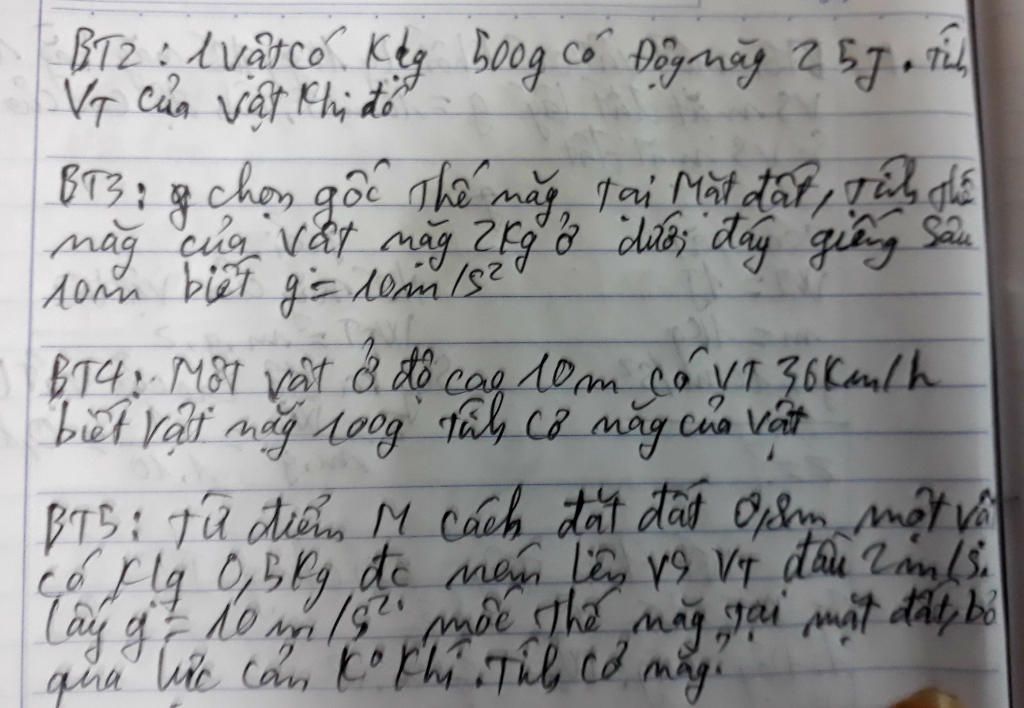 BT2: 1 vật có Klg 500g có Động năg 25J. Tíh
VT của vật khi đó
BT3: chọn gốc Thế năg Tại Mặt đất, Tíh thế
năg của vật nặg 2Kg ở dưới đáy giếng Sâu
10m biết g = 10m/s²
BT4: Một vật ở độ cao 10m có VT 36Km/h
biết vật nặg 100g Tíh cơ năg của vật
BT5: Từ điểm M cách đất 0,8m một vật
có Klg 0,5Kg đc ném lên vs VT đầu 2m/s.
lấy g = 10m/s². mốc Thế năg tại mặt đất, bỏ
qua lực cản Kº Khí. Tíh Cơ năg.